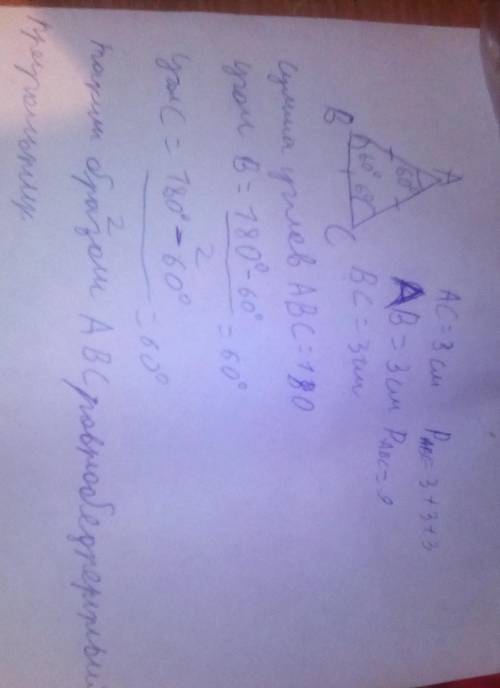 A
60°
60° 60°
B
C
AC = 3 см P ABC = 3 + 3 + 3
AB = 3 см P ABC = 9
BC = 3 см
Сумма углов ABC = 180
Угол B = 180° - 60° = 60°
2
Угол C = 180° - 60° = 60°
2
Таким образом ABC равнобедренный
треугольник